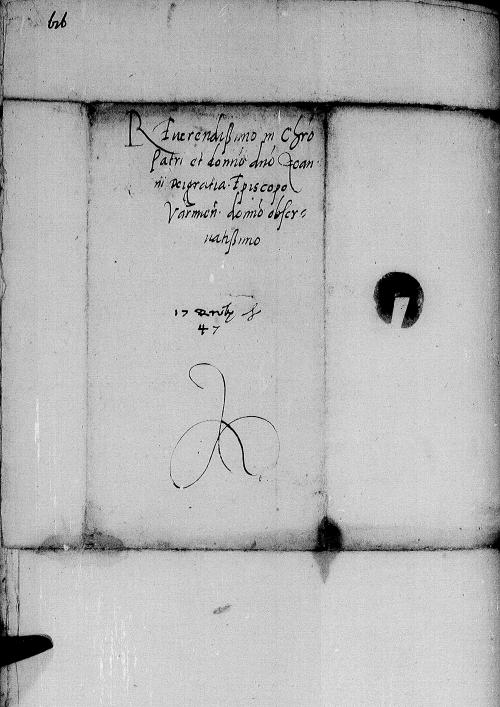 626
Reverendissimo in Chr̃o
Patri et domĩo dño Joan-
ni Dei gratia Episcopo
Varmieñ domĩo obser=
vatissimo
17
47